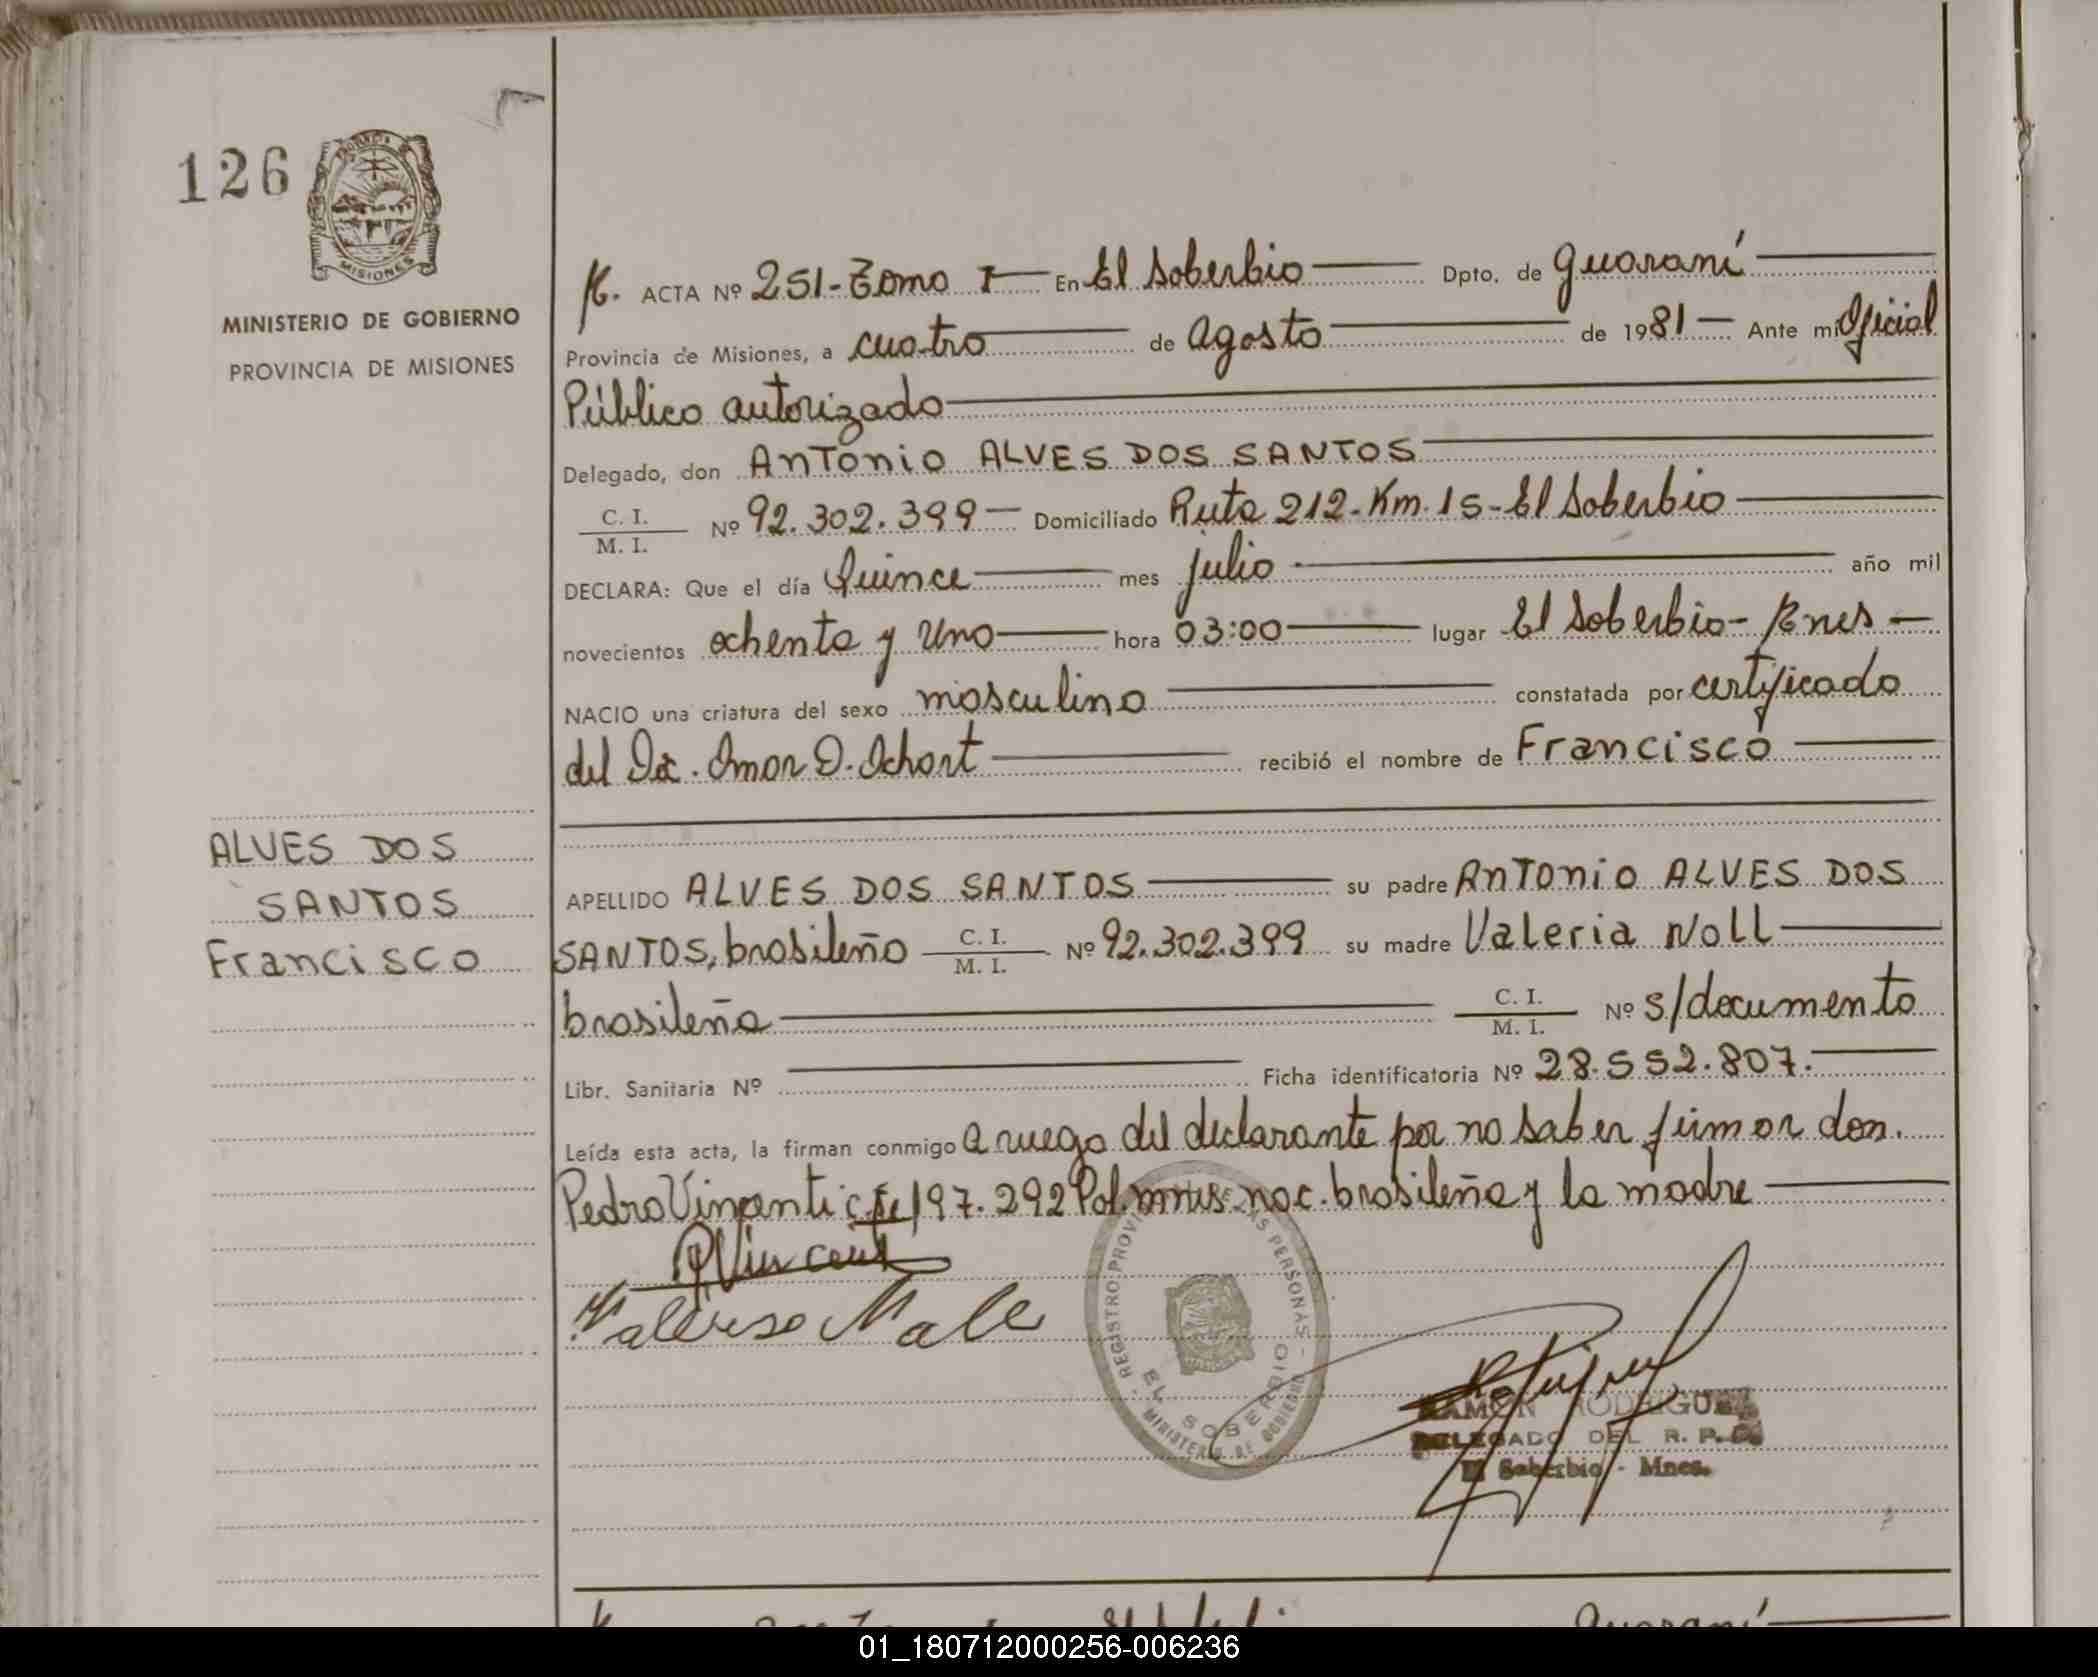 126
MISIONES
MINISTERIO DE GOBIERNO
PROVINCIA DE MISIONES
ALVES DOS
SANTOS
Francisco
ACTA Nº 251-Tomo I En El Soberbio Dpto. de Guaraní
Provincia de Misiones, a cuatro de Agosto de 1981 Ante mi Oficial
Público autorizado
Delegado, don Antonio ALVES DOS SANTOS
C. I. / M. I. Nº 92.302.399 Domiciliado Ruta 212-Km.15-El Soberbio
DECLARA: Que el día Quince mes julio año mil
novecientos ochenta y uno hora 03:00 lugar El Soberbio-Mnes
NACIO una criatura del sexo masculino constatada por certificado
del Dr. Omar D. recibió el nombre de Francisco
APELLIDO ALVES DOS SANTOS su padre Antonio ALVES DOS
SANTOS, brasileño C. I. / M. I. Nº 92.302.399 su madre Valeria Noll
brasileña C. I. / M. I. Nº s/documento
Libr. Sanitaria Nº Ficha identificatoria Nº 28.552.807.
Leída esta acta, la firman conmigo a ruego del declarante por no saber firmar don
Pedro 197.292 Pol. mnes nac. brasileña y la madre
REGISTRO PROVINCIAL DE LAS PERSONAS
EL SOBERBIO
MINISTERIO DE GOBIERNO
RAMON RODRIGUEZ
DELEGADO DEL R. P.
El Soberbio - Mnes.
01_180712000256-006236